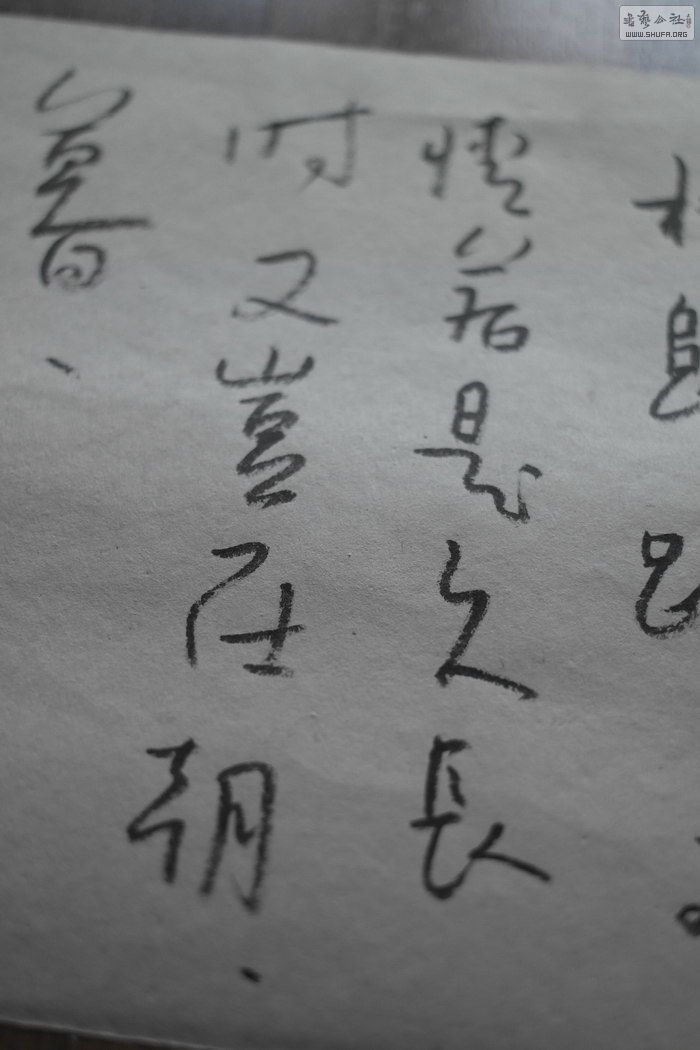 情若是久長
时又豈在朝、
暮、
書藝公社
WWW.SHUFA.ORG